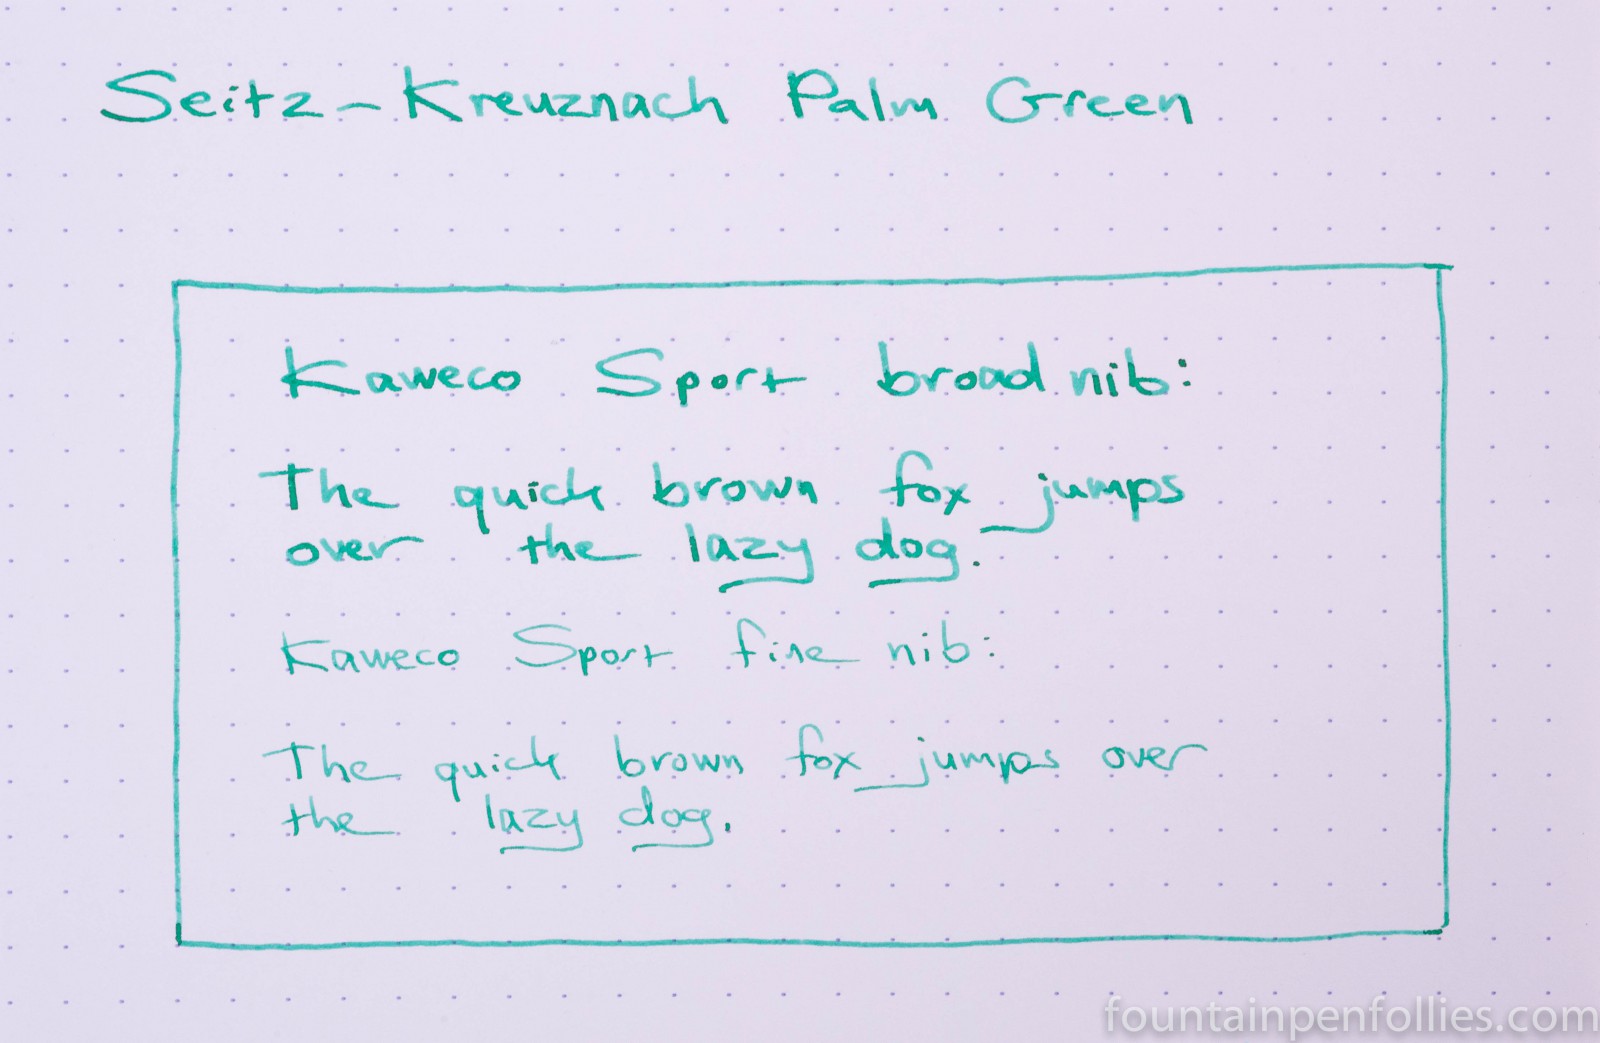 Seitz-Kreuznach Palm Green
Kaweco Sport broad nib:
The quick brown fox jumps
over the lazy dog.
Kaweco Sport fine nib:
The quick brown fox jumps over
the lazy dog.
fountainpenfollies.com